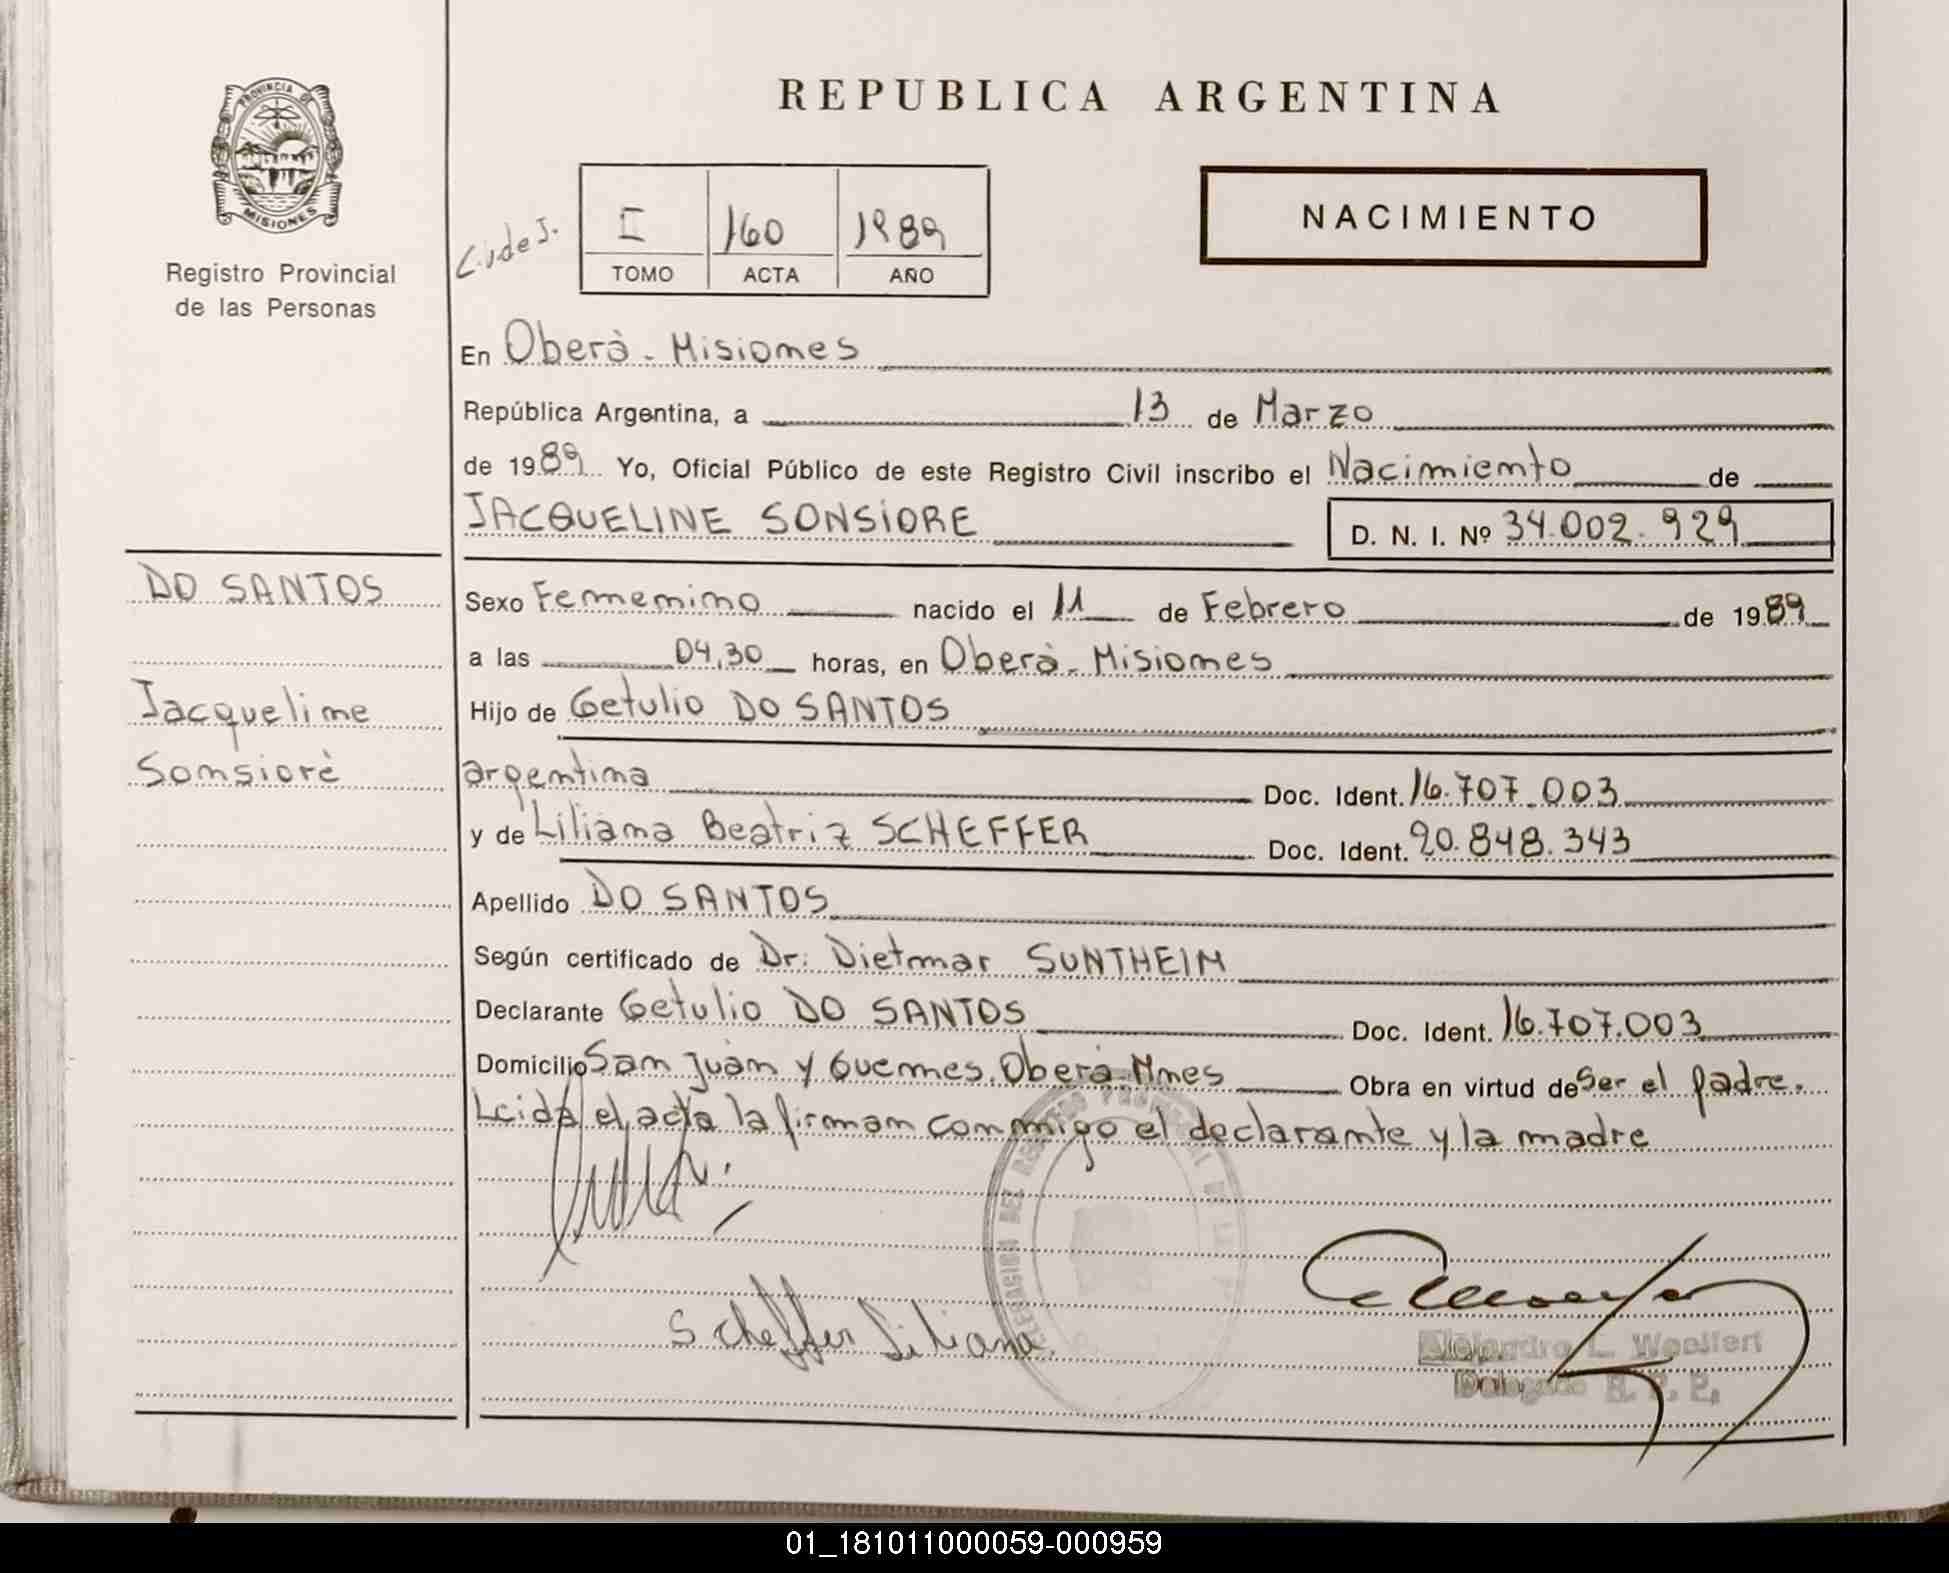 PROVINCIA DE
MISIONES
Registro Provincial
de las Personas
REPUBLICA ARGENTINA
I 160 1989
TOMO ACTA AÑO
NACIMIENTO
En Oberà - Misiones
República Argentina, a 13 de Marzo
de 1989 Yo, Oficial Público de este Registro Civil inscribo el Nacimiento de
JACQUELINE SONSIORE D. N. I. Nº 34.002.929
DO SANTOS
Jacqueline
Sonsiorè
Sexo Femenino nacido el 11 de Febrero de 1989
a las 04,30 horas, en Oberà - Misiones
Hijo de Getulio DO SANTOS
argentina Doc. Ident. 16.707.003
y de Liliana Beatriz SCHEFFER Doc. Ident. 20.848.343
Apellido DO SANTOS
Según certificado de Dr. Dietmar SUNTHEIM
Declarante Getulio DO SANTOS Doc. Ident. 16.707.003
Domicilio San Juàn y Guemes. Oberà - Mnes Obra en virtud de Ser el padre.
Leida el acta la firman conmigo el declarante y la madre
Scheffer Liliana
Alejandro L. Woelfert
Delegado R. P. P.
01_181011000059-000959